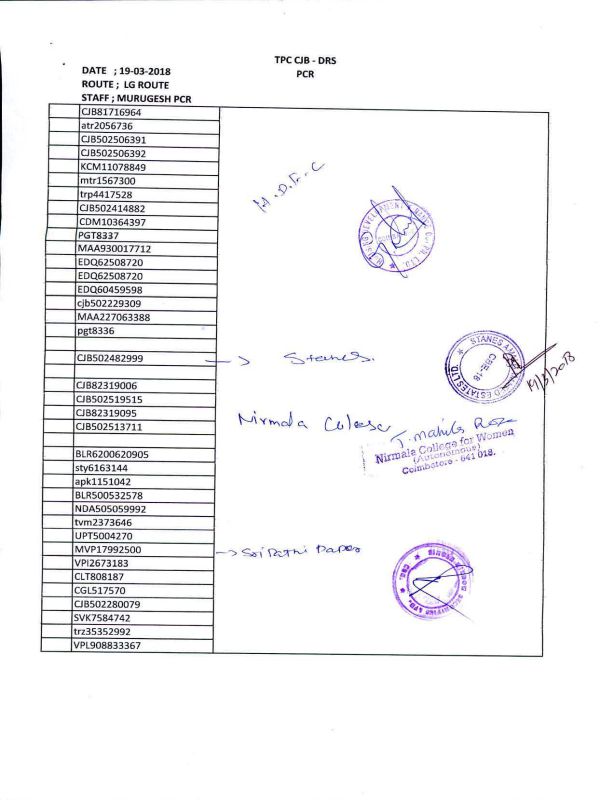 TPC CJB - DRS
PCR
DATE ; 19-03-2018
ROUTE ; LG ROUTE
STAFF ; MURUGESH PCR
CJB81716964
atr2056736
CJB502506391
CJB502506392
KCM11078849
mtr1567300
trp4417528
CJB502414882
CDM10364397
PGT8337
MAA930017712
EDQ62508720
EDQ62508720
EDQ60459598
cjb502229309
MAA227063388
pgt8336
CJB502482999
CJB82319006
CJB502519515
CJB82319095
CJB502513711
BLR6200620905
sty6163144
apk1151042
BLR500532578
NDA505059992
tvm2373646
UPT5004270
MVP17992500
VPI2673183
CLT808187
CGL517570
CJB502280079
SVK7584742
trz35352992
VPL908833367
H.D.F.C
Stanes.
STANES
ESTATES LTD.
CBE-18
Nirmala
Nirmala College for Women
(Autonomous)
Coimbatore - 641 018.